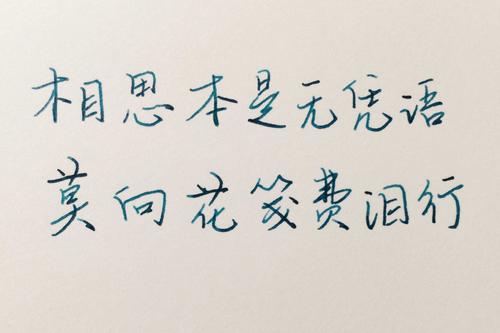 相思本是无凭语
莫向花笺费泪行